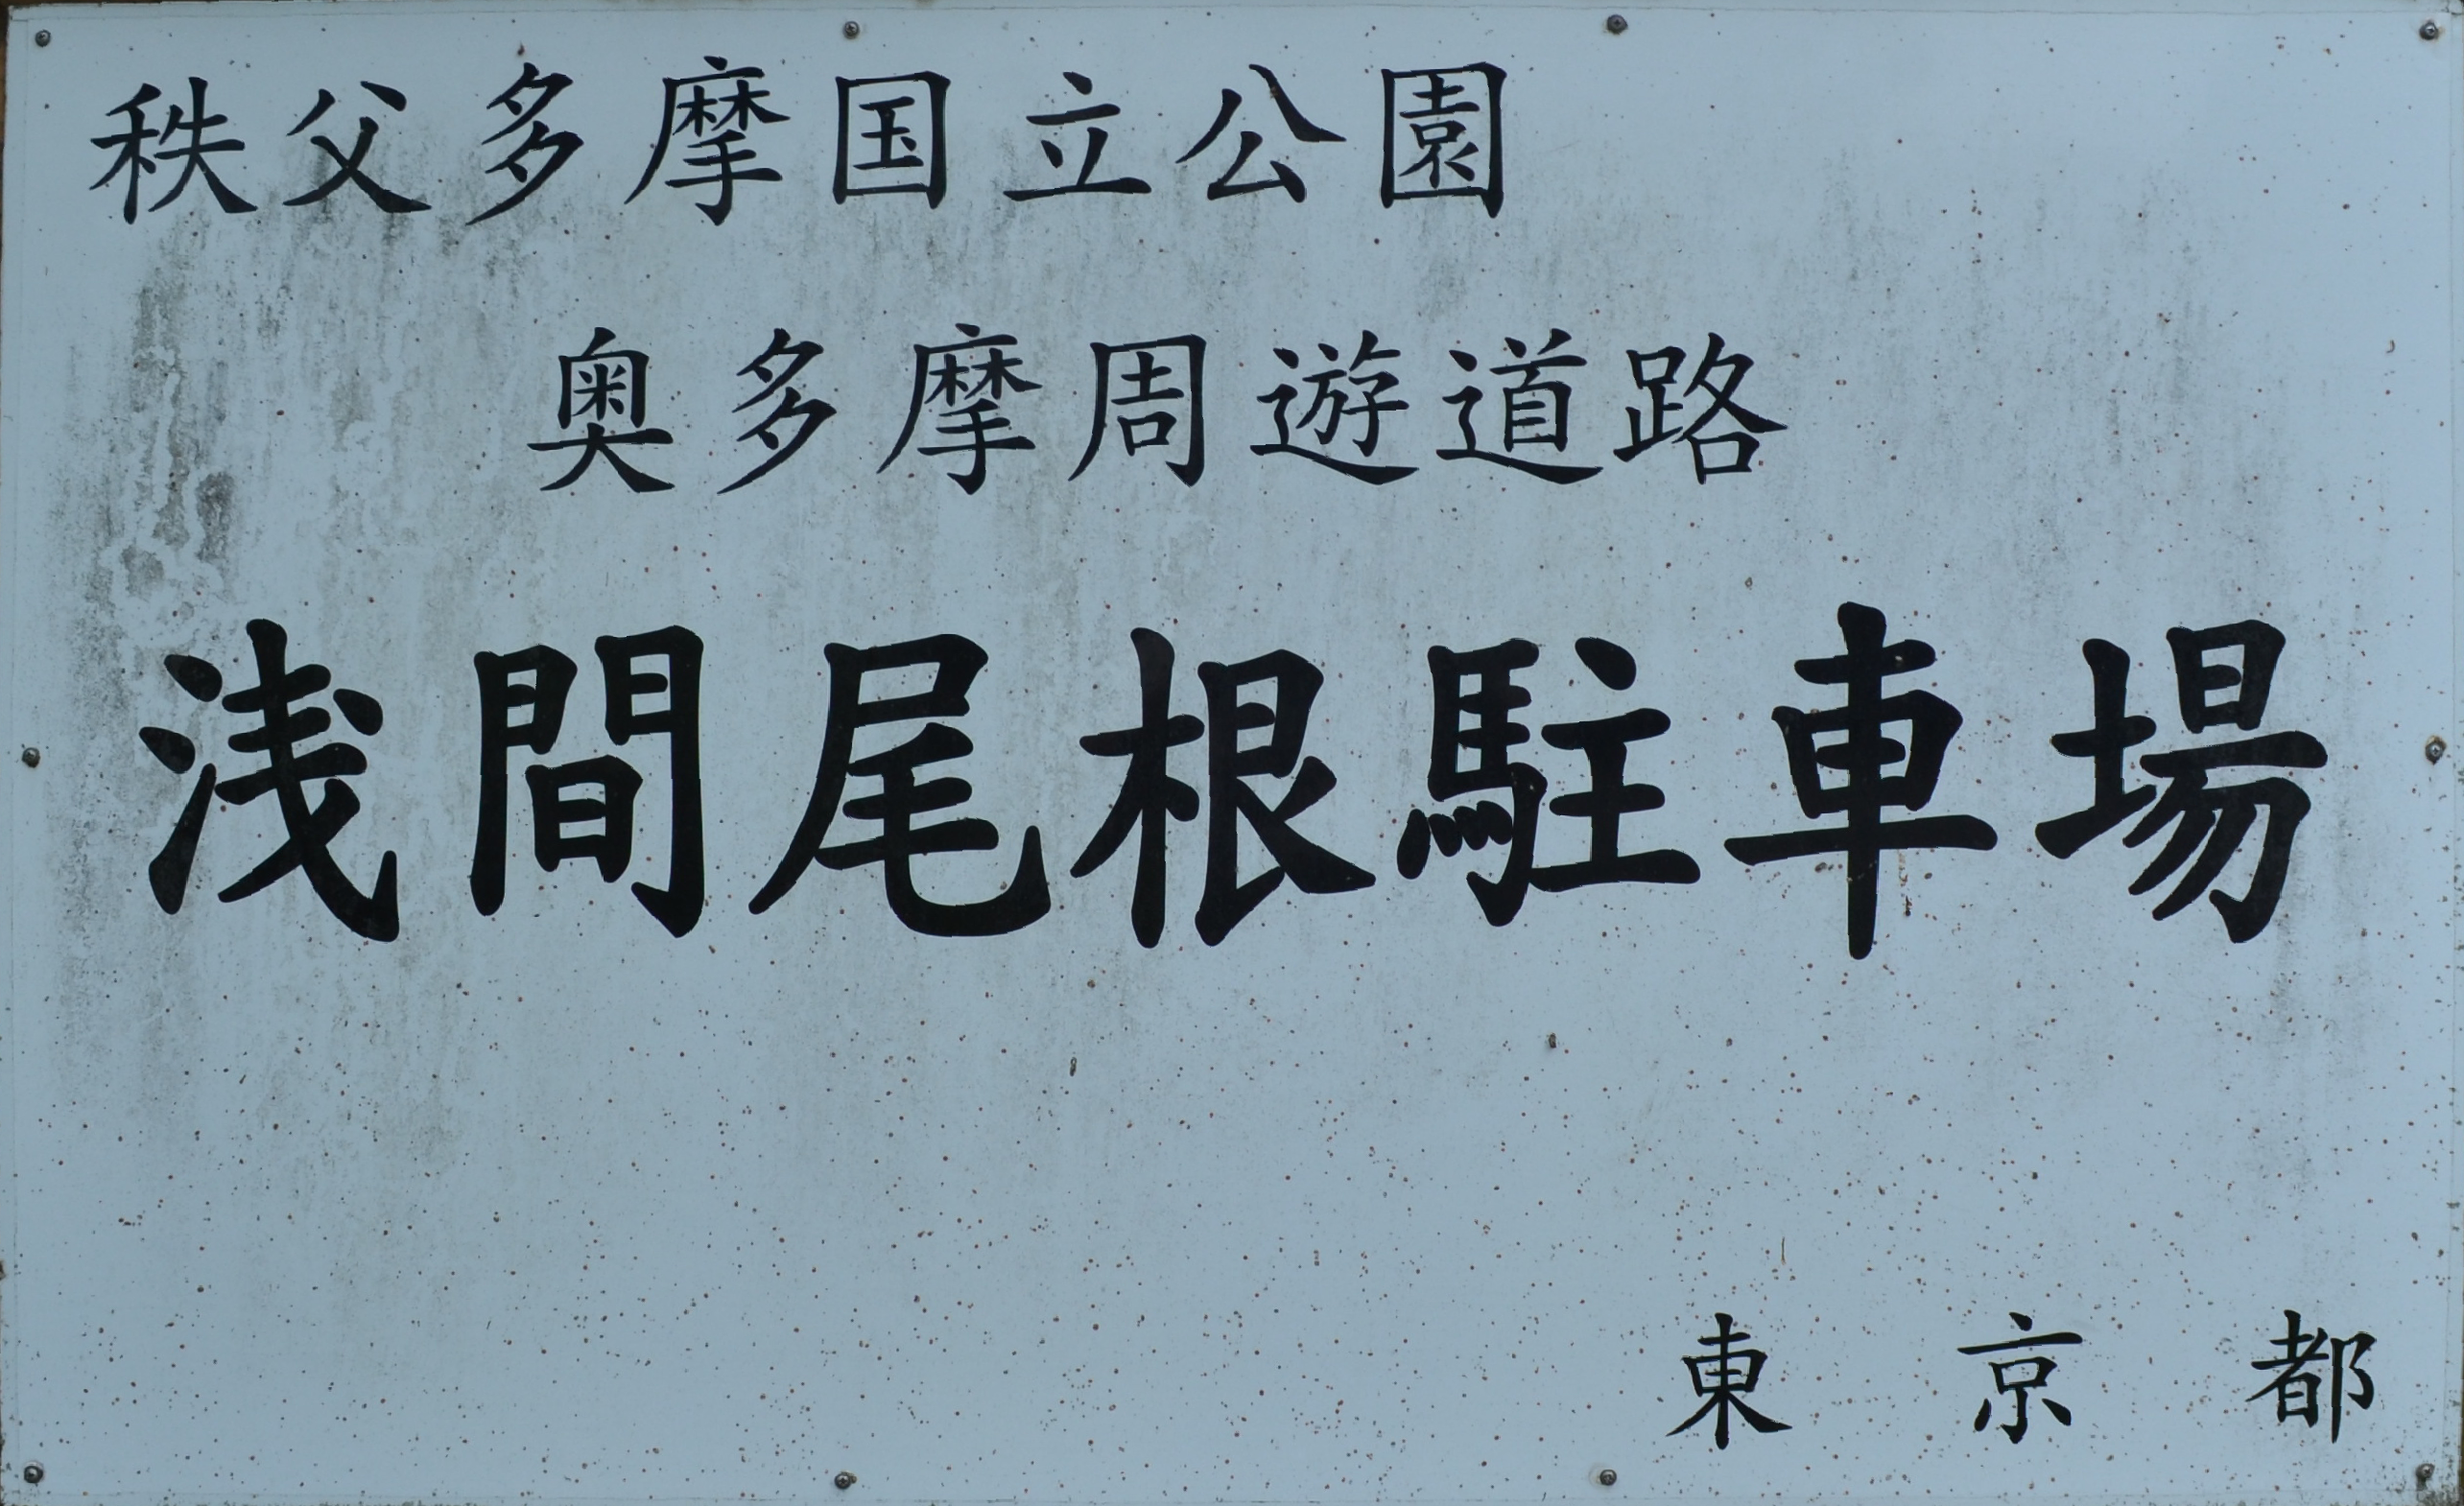 秩父多摩国立公園
奥多摩周遊道路
浅間尾根駐車場
東京都